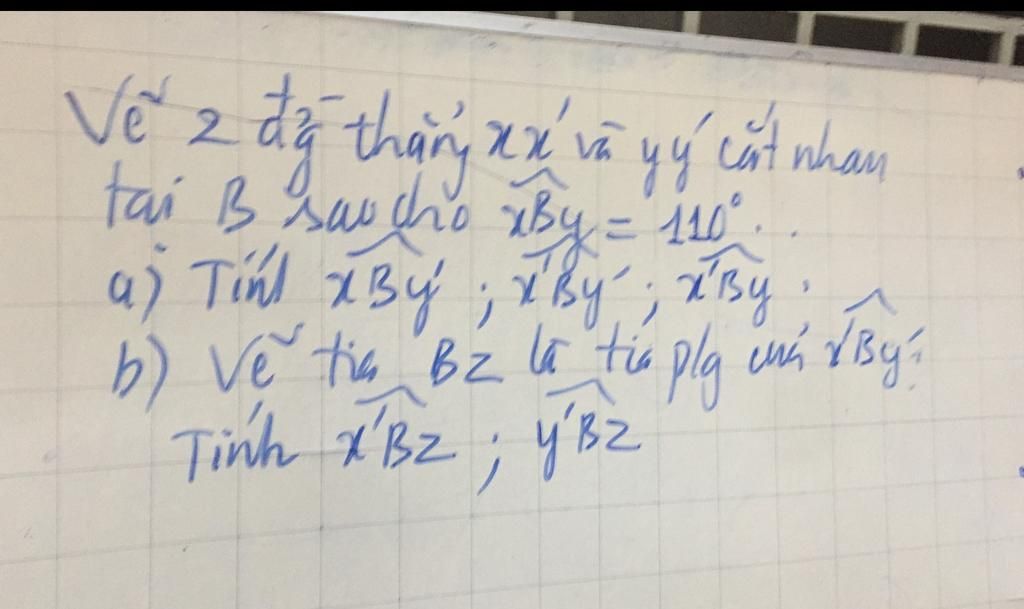 Vẽ 2 đg̃ thẳng xx' và yy' cắt nhau
tại B sao cho xBy = 110°.
a) Tính xBy' ; x'By' ; x'By.
b) Vẽ tia Bz là tia p/g của x'By'.
Tính x'Bz ; y'Bz